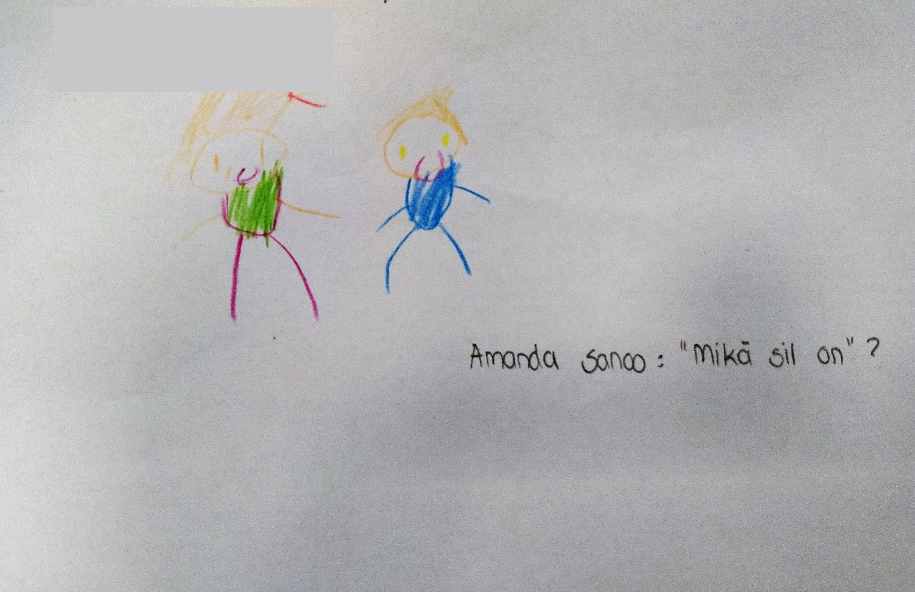 Amanda sanoo: "Mikä sil on"?